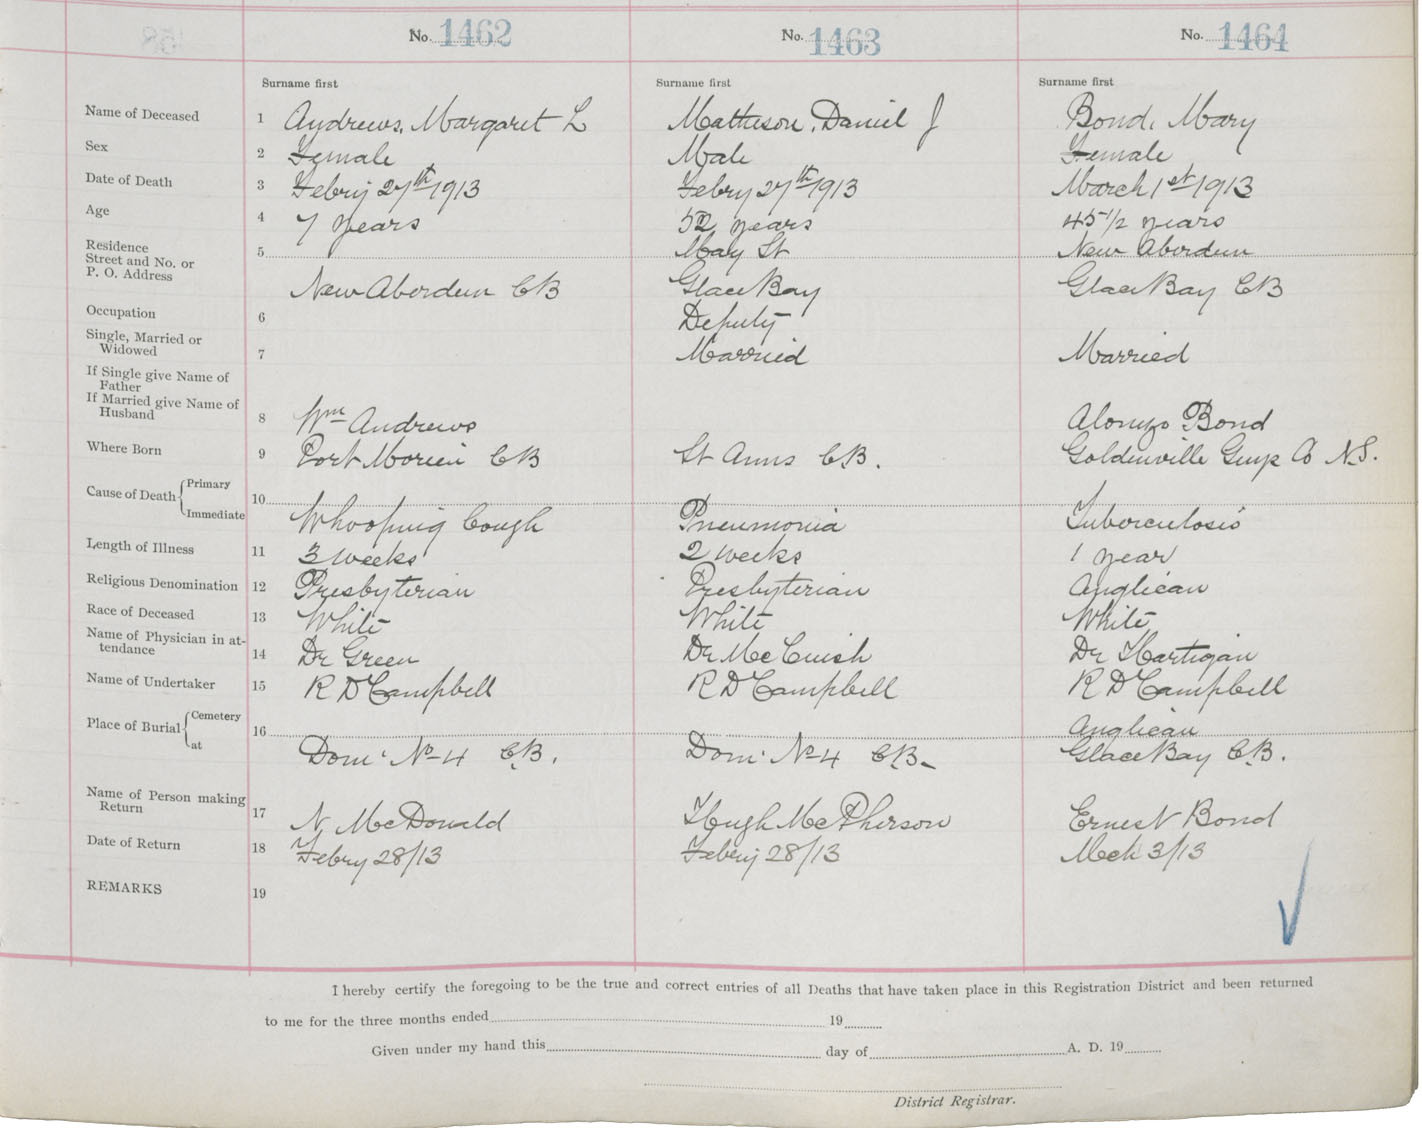 No. 1462 No. 1463 No. 1464
Surname first Surname first Surname first
Name of Deceased 1 Andrews, Margaret L Matheson, Daniel J Bond, Mary
Sex 2 Female Male Female
Date of Death 3 Febry 27th 1913 Febry 27th 1913 March 1st 1913
Age 4 7 years 52 years 45 1/2 years
Residence 5 May St New Aberdeen
Street and No. or
P. O. Address New Aberdeen CB Glace Bay Glace Bay CB
Occupation 6 Deputy
Single, Married or
Widowed 7 Married Married
If Single give Name of
Father
If Married give Name of
Husband 8 Wm Andrews Alonzo Bond
Where Born 9 Port Morien CB St Anns C.B. Goldenville Guys Co N.S.
Cause of Death Primary 10
Immediate Whooping Cough Pneumonia Tuberculosis
Length of Illness 11 3 weeks 2 weeks 1 year
Religious Denomination 12 Presbyterian Presbyterian Anglican
Race of Deceased 13 White White White
Name of Physician in at-
tendance 14 Dr Green Dr McCuish Dr Hartigan
Name of Undertaker 15 R D Campbell R D Campbell R D Campbell
Place of Burial Cemetery 16 Anglican
at Dom. No 4 C.B. Dom. No 4 C.B. Glace Bay C.B.
Name of Person making
Return 17 N McDonald Hugh McPherson Ernest Bond
Date of Return 18 Febry 28/13 Febry 28/13 Mch 3/13
REMARKS 19
I hereby certify the foregoing to be the true and correct entries of all Deaths that have taken place in this Registration District and been returned
to me for the three months ended 19
Given under my hand this day of A. D. 19
District Registrar.